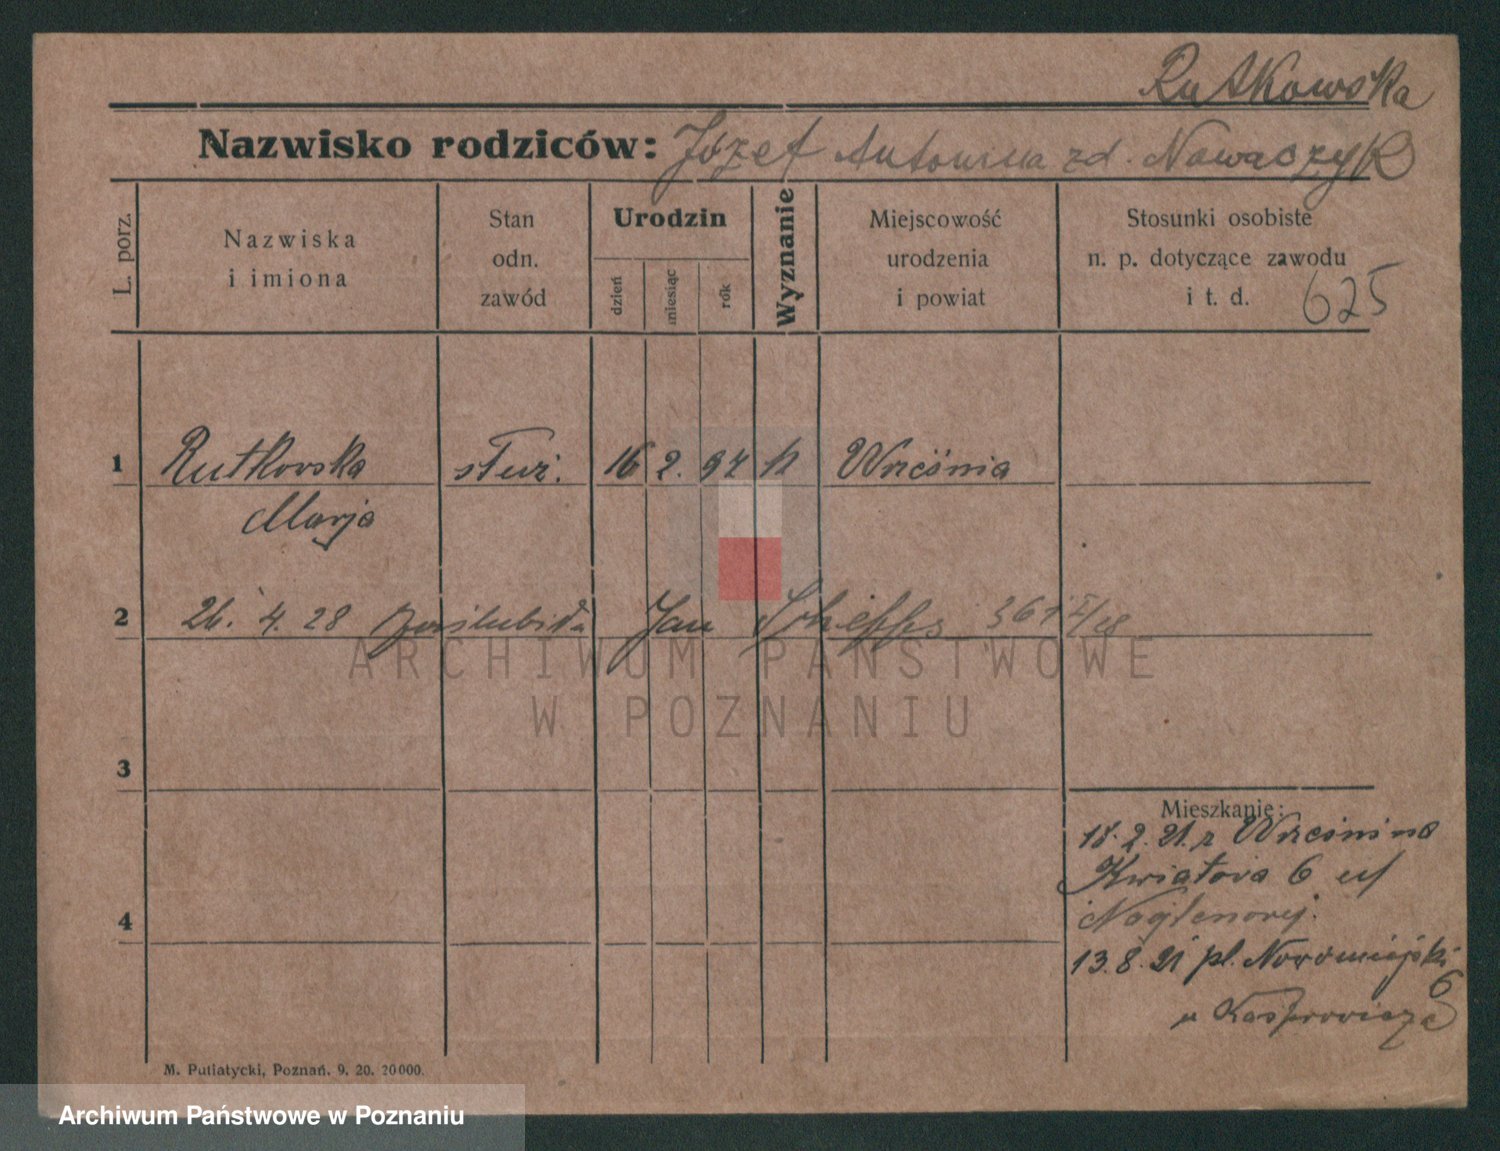 Rutkowska
Nazwisko rodziców: Józef Antonina zd. Nowaczyk
L. porz.
Nazwiska
i imiona
Stan
odn.
zawód
Urodzin
dzień
miesiąc
rok
Wyznanie
Miejscowość
urodzenia
i powiat
Stosunki osobiste
n. p. dotyczące zawodu
i t. d.
625
1 Rutkovska służ. 16 2. 94 k Wrćśnia
Marja
2 26. 4. 28 Jan 361
ARCHIWUM PAŃSTWOWE
W POZNANIU
3
Mieszkanie:
18. 2. 21. z Wrześni na
Kwiatova 6 u
4
13. 8. 21 pl. Novomiejski
6
u Kasprovicza
M. Putiatycki, Poznań. 9. 20. 20000.
Archiwum Państwowe w Poznaniu